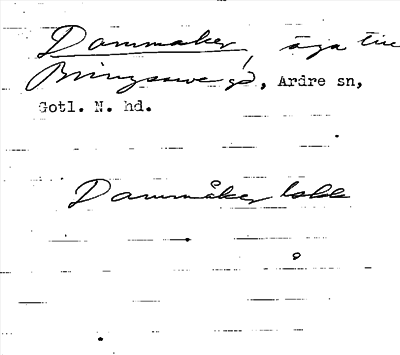 Dammaker, äga till
Bringsarve gd, Ardre sn,
Gotl. N. hd.
Dammåker